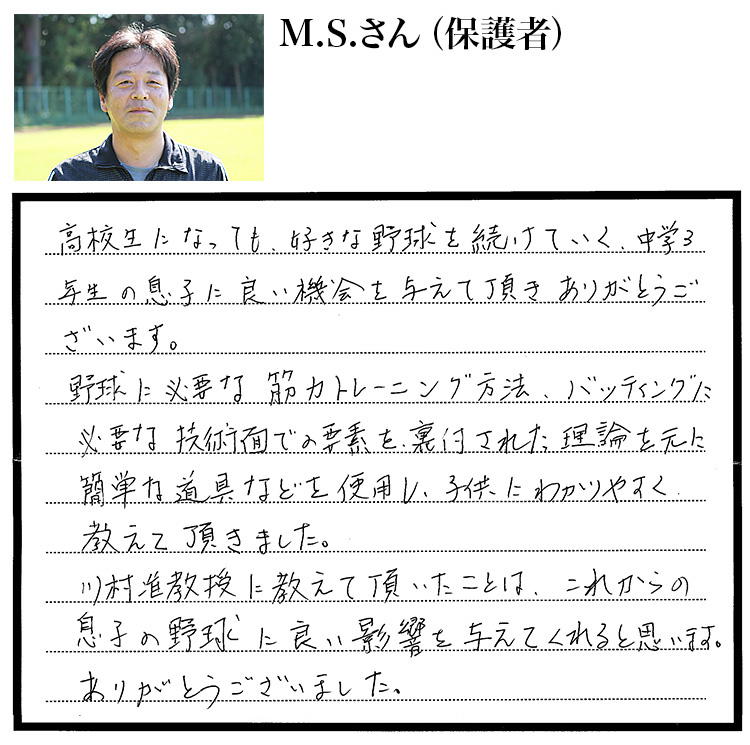 M.S.さん（保護者）
高校生になっても、好きな野球を続けていく、中学3
年生の息子に良い機会を与えて頂きありがとうご
ざいます。
野球に必要な筋力トレーニング方法、バッティングに
必要な技術面での要素を、裏付された理論を元に
簡単な道具などを使用し、子供にわかりやすく
教えて頂きました。
川村准教授に教えて頂いたことは、これからの
息子の野球に良い影響を与えてくれると思います。
ありがとうございました。